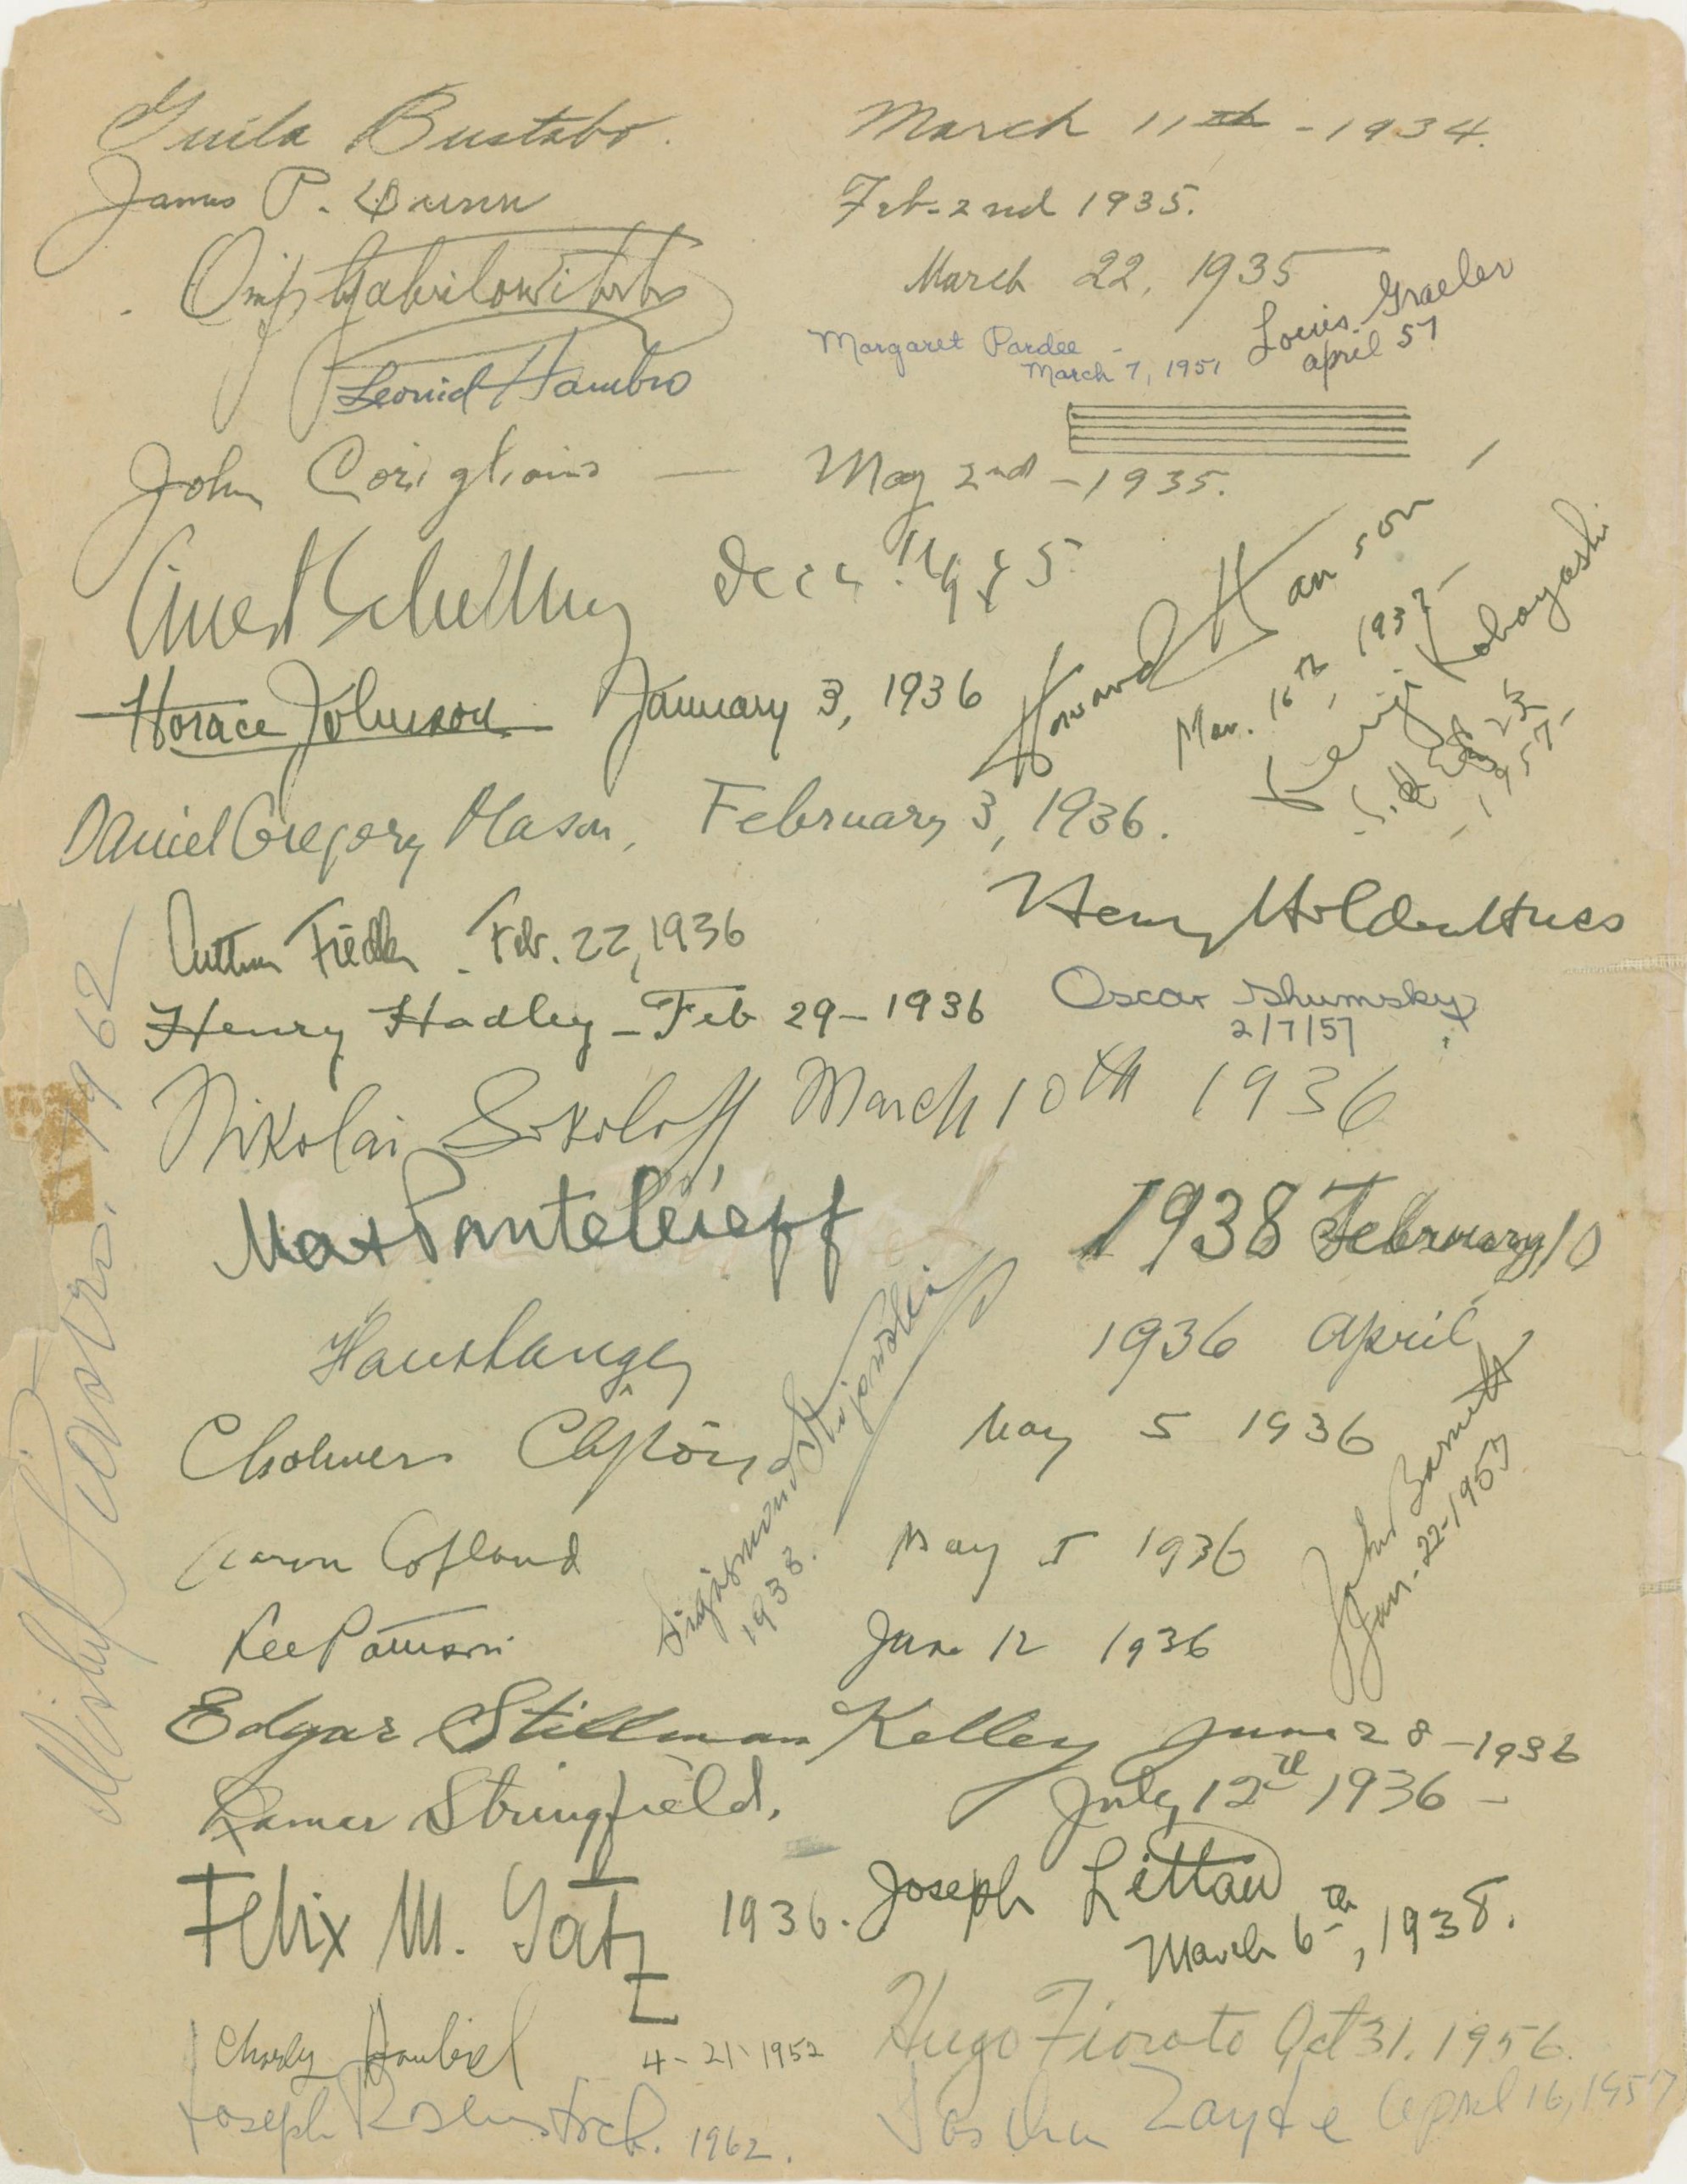 Guila Bustabo.
March 11th - 1934.
James P. Dunn
Feb. 2nd 1935.
Ossip Gabrilowitsch
March 22, 1935
Louis Graeler
april 57
Margaret Pardee -
March 7, 1957
Leonid Hambro
John Corigliano — May 2nd - 1935.
Ernest Schelling
Howard Hanson
Mar. 16th, 1937
Kenji Kobayashi
1957
Horace Johnson January 3, 1936
Daniel Gregory Mason, February 3, 1936.
Henry Holden Huss
Arthur Fiedler . Feb. 22, 1936
Henry Hadley - Feb 29 - 1936
Oscar Shumsky
2/7/57
Nikolai Sokoloff, March 10th 1936
Max Panteleieff
1938 February 10
Hans Lange
1936 April
Chalmers Clifton
May 5 1936
Sigismond Stojowski
1938.
John Barnett
Jan. 22 - 1957
Aaron Copland
May 5 1936
Lee Pattison
June 12 1936
Edgar Stillman Kelley June 28 - 1936
Lamar Stringfield,
July 12th 1936 -
Felix M. Gatz 1936.
Joseph Littau
March 6th, 1938.
Charles Haubiel 4 - 21 1952
Hugo Fiorato Oct 31. 1956.
Joseph Rosenstock. 1962.
Jascha Zayde April 16, 1957
Mishel Piastro. 1962